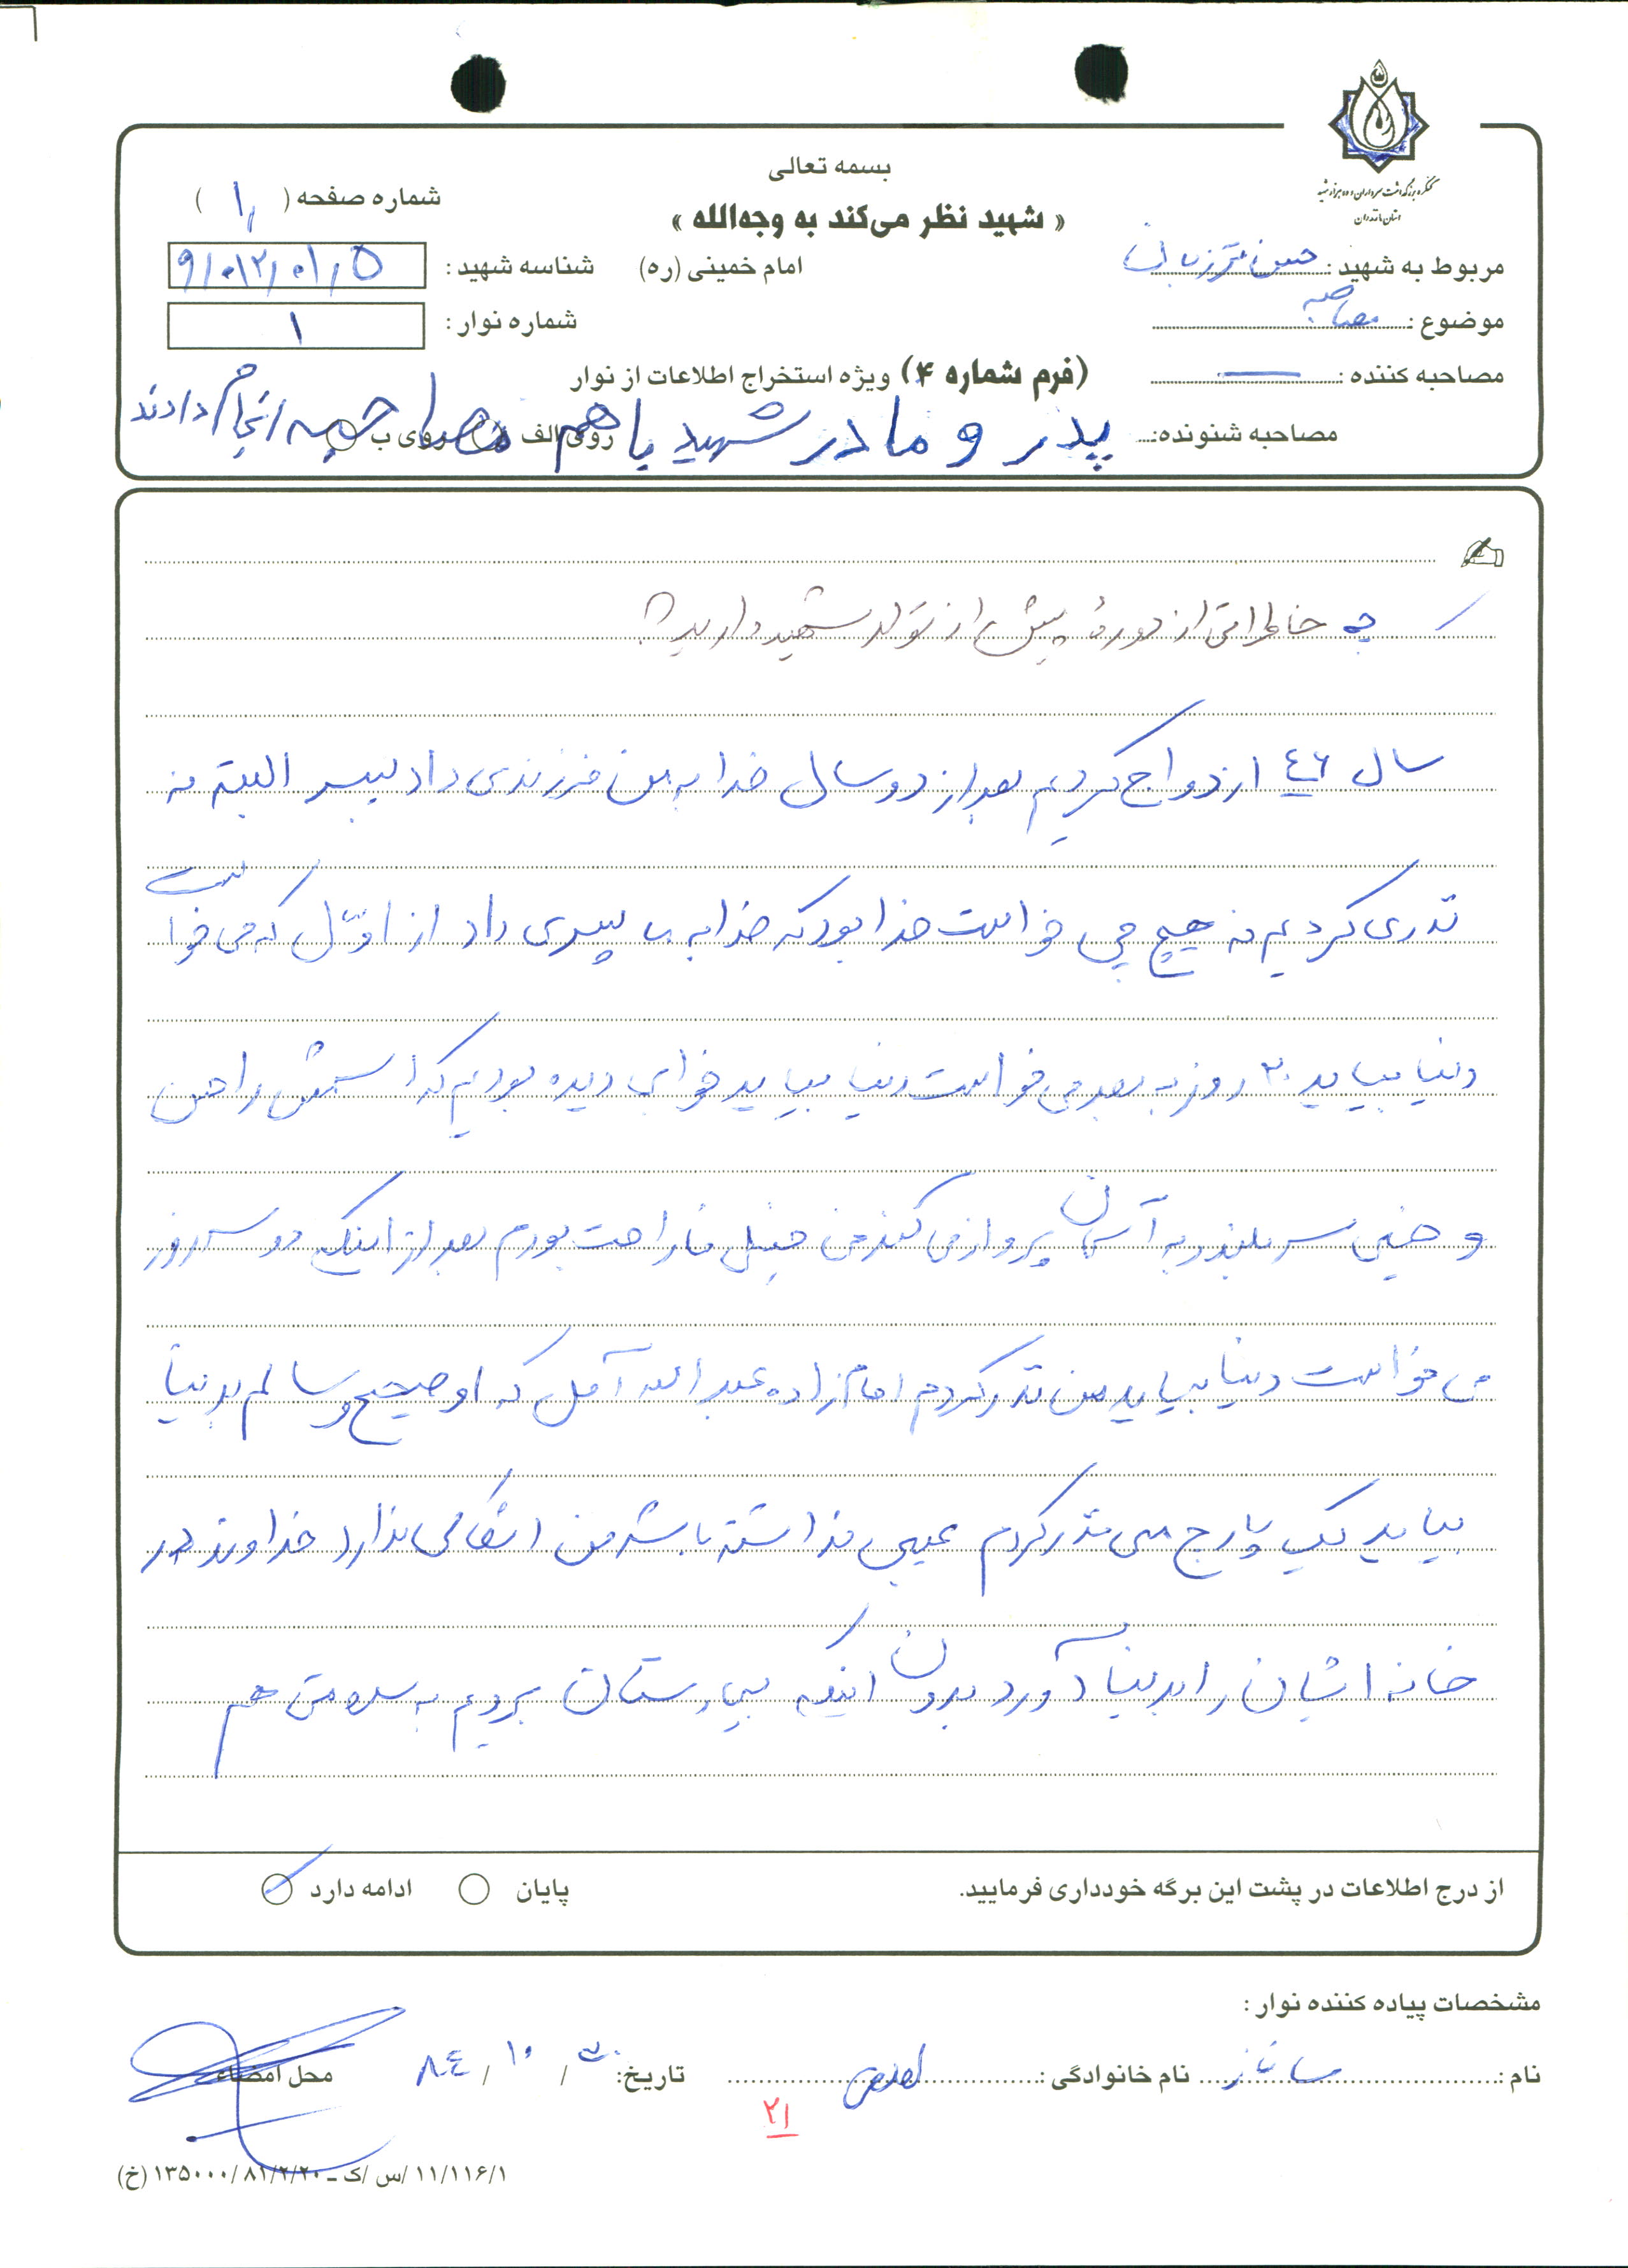 کنگره بزرگداشت سرداران و ده هزار شهید
استان مازندران
بسمه تعالی
« شهید نظر می‌کند به وجه‌الله »
امام خمینی (ره)
شماره صفحه ( ۱ )
شناسه شهید :
شماره نوار : ۱
مربوط به شهید : حسن
موضوع : مصاحبه
مصاحبه کننده : —
(فرم شماره ۴) ویژه استخراج اطلاعات از نوار
مصاحبه شنونده: پدر و مادر شهید با هم مصاحبه انجام دادند
روی الف روی ب
چه خاطراتی از دورهٔ پیش از تولد شهید دارید؟
سال ٤٦ ازدواج کردیم بعد از دو سال خدا به من فرزندی داد پسر البته نه
نذری کردیم نه هیچ چی خواست خدا بود که خدا به ما پسری داد از اوّل که می خواست
دنیا بیاید ۲۰ روز به بعد می خواست دنیا بیاید خوابی دیده بودیم که اسمش را حسن
و خیلی سربلند به آسمان پرواز می کند من خیلی ناراحت بودم بعد از اینکه دو سه روز
می خواست دنیا بیاید من نذر کردم امام زاده عبدالله آمل که او صحیح و سالم بدنیا
بیاید یک پارچ مسی نذر کردم عیبی نداشته باشد من اشکالی ندارد خداوند در
خانه ایشان را بدنیا آورد بدون اینکه بیمارستان بردیم به سلامتی هم
از درج اطلاعات در پشت این برگه خودداری فرمایید.
پایان
ادامه دارد
مشخصات پیاده کننده نوار :
نام : ساناز نام خانوادگی : تاریخ: ۳۰ / ۱۰ / ۸٤ محل امضاء
۲۱
۱۱/۱۱۶/۱ /س /ک ـ ۸۱/۲/۲۰ /۱۳۵۰۰۰ (خ)